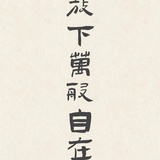 放下萬般自在